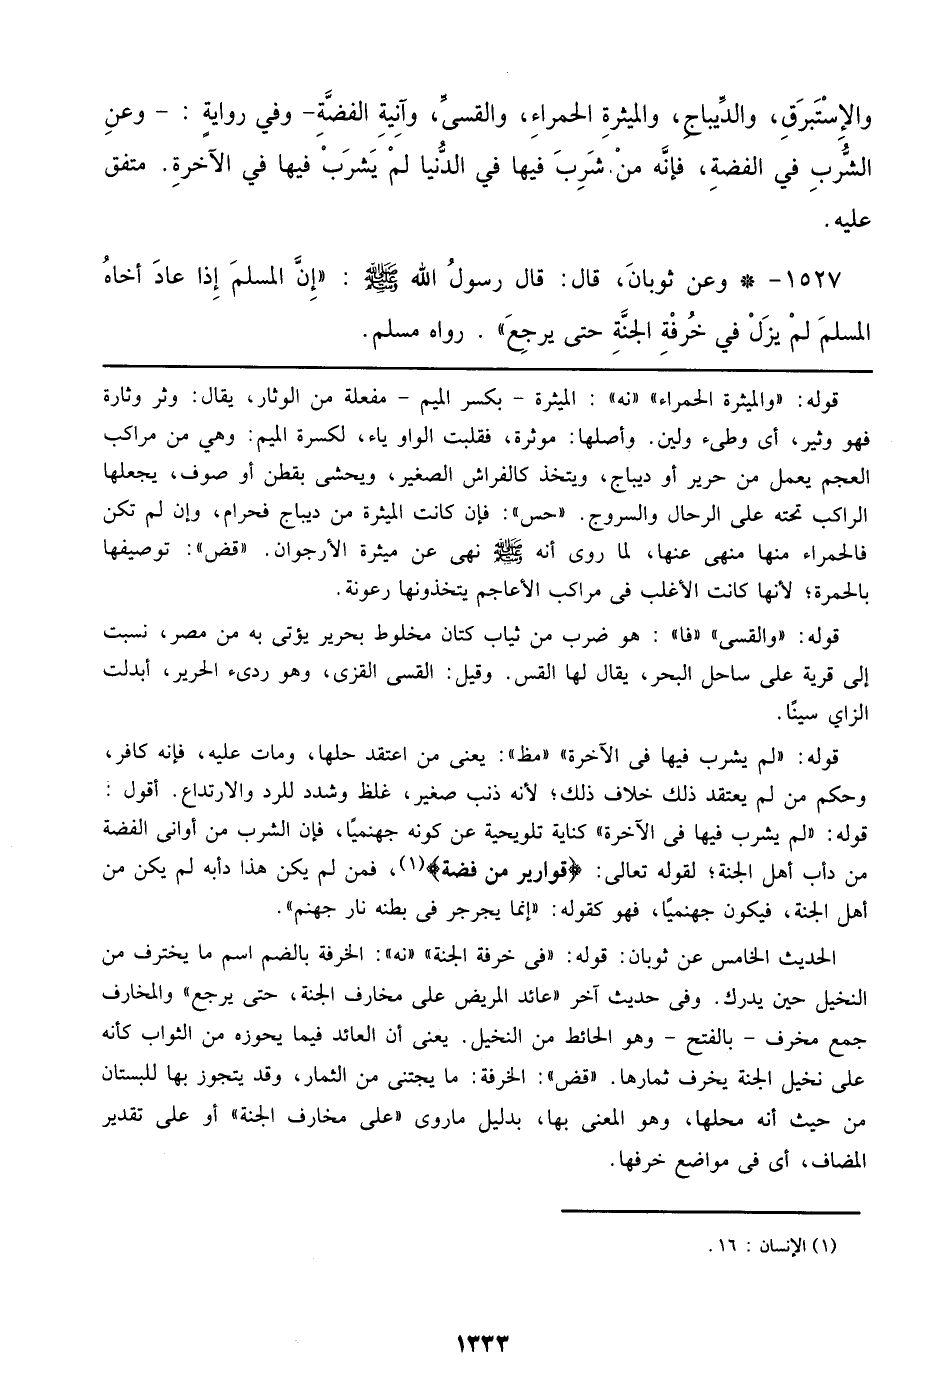 والإِسْتَبرَقِ، والدِّيباجِ، والميثرةِ الحمراءِ، والقسىِّ، وآنِيةِ الفضَّةِ- وفي روايةٍ : - وعنِ
الشُّربِ في الفضةِ، فإنَّه منْ شَرِبَ فيها في الدُّنيا لمْ يَشرَبْ فيها في الآخرةِ. متفق
عليه.
١٥٢٧- * وعن ثوبانَ، قال: قال رسولُ الله ﷺ : «إِنَّ المسلمَ إِذا عادَ أخاهُ
المسلمَ لمْ يزَلْ في خُرفْةِ الجنَّةِ حتى يرجِعَ» . رواه مسلم.
قوله: «والميثرة الحمراء» «نه» : الميثرة - بكسر الميم - مفعلة من الوثار، يقال: وثر وثارة
فهو وثير، أى وطىء ولين. وأصلها: موثرة، فقلبت الواو ياء، لكسرة الميم: وهي من مراكب
العجم يعمل من حرير أو ديباج، ويتخذ كالفراش الصغير، ويحشى بقطن أو صوف، يجعلها
الراكب تحته على الرحال والسروج. «حس»: فإن كانت الميثرة من ديباج فحرام، وإن لم تكن
فالحمراء منها منهى عنها، لما روى أنه ﷺ نهى عن ميثرة الأرجوان. «قض»: توصيفها
بالحمرة؛ لأنها كانت الأغلب فى مراكب الأعاجم يتخذونها رعونة.
قوله: «والقسى» «فا» : هو ضرب من ثياب كتان مخلوط بحرير يؤتى به من مصر، نسبت
إلى قرية على ساحل البحر، يقال لها القس. وقيل: القسى القزى، وهو ردىء الحرير، أبدلت
الزاي سينًا.
قوله: «لم يشرب فيها فى الآخرة» «مظ»: يعنى من اعتقد حلها، ومات عليه، فإنه كافر،
وحكم من لم يعتقد ذلك خلاف ذلك؛ لأنه ذنب صغير، غلظ وشدد للرد والارتداع. أقول :
قوله: «لم يشرب فيها فى الآخرة» كناية تلويحية عن كونه جهنميًا، فإن الشرب من أوانى الفضة
من دأب أهل الجنة؛ لقوله تعالى: ﴿قوارير من فضة﴾(١)، فمن لم يكن هذا دأبه لم يكن من
أهل الجنة، فيكون جهنميًا، فهو كقوله: «إنما يجرجر فى بطنه نار جهنم».
الحديث الخامس عن ثوبان: قوله: «فى خرفة الجنة» «نه»: الخرفة بالضم اسم ما يخترف من
النخيل حين يدرك. وفى حديث آخر «عائد المريض على مخارف الجنة، حتى يرجع» والمخارف
جمع مخرف - بالفتح - وهو الحائط من النخيل. يعنى أن العائد فيما يحوزه من الثواب كأنه
على نخيل الجنة يخرف ثمارها. «قض»: الخرفة: ما يجتنى من الثمار، وقد يتجوز بها للبستان
من حيث أنه محلها، وهو المعنى بها، بدليل ماروى «على مخارف الجنة» أو على تقدير
المضاف، أى فى مواضع خرفها.
(١) الإنسان : ١٦ .
١٣٣٣